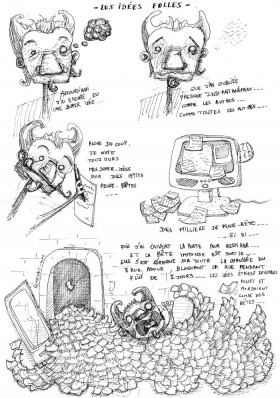 - LES IDÉES FOLLES -
AUJOURD'HUI
J'AI ENCORE EU
UNE SUPER IDÉE...
QUE J'AI OUBLIÉ
PRESQUE INSTANTANÉMENT...
COMME LES AUTRES...
COMME TOUTES LES AUTRES...
ALORS DU COUP,
JE NOTE
TOUJOURS
MES SUPER IDÉES
SUR DES PETITS
PENSE-BÊTES
DES MILLIERS DE PENSE BÊTE...
SI SI...
J'AI OUVERT LA PORTE POUR RESPIRER...
ET LA BÊTE IMMONDE EST SORTIE...
ELLE S'EST RÉPANDUE SUR TOUTE LA CHAUSSÉE DU
RUE BLOQUANT CA RUE PENDANT
PLUS DE 2 JOURS... LES IDÉES ÉTAIENT DEVENUES
FOLLES ET
MORDAIENT
COMME DES
BÊTES